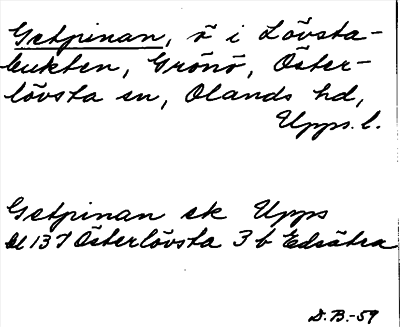 Getpinan, ö i Lövsta-
bukten, Grönö, Öster-
lövsta sn, Olands hd,
Upps. l.
Getpinan ek Upps
Bl 137 Österlövsta 3 b Edsätra
D.B.-59